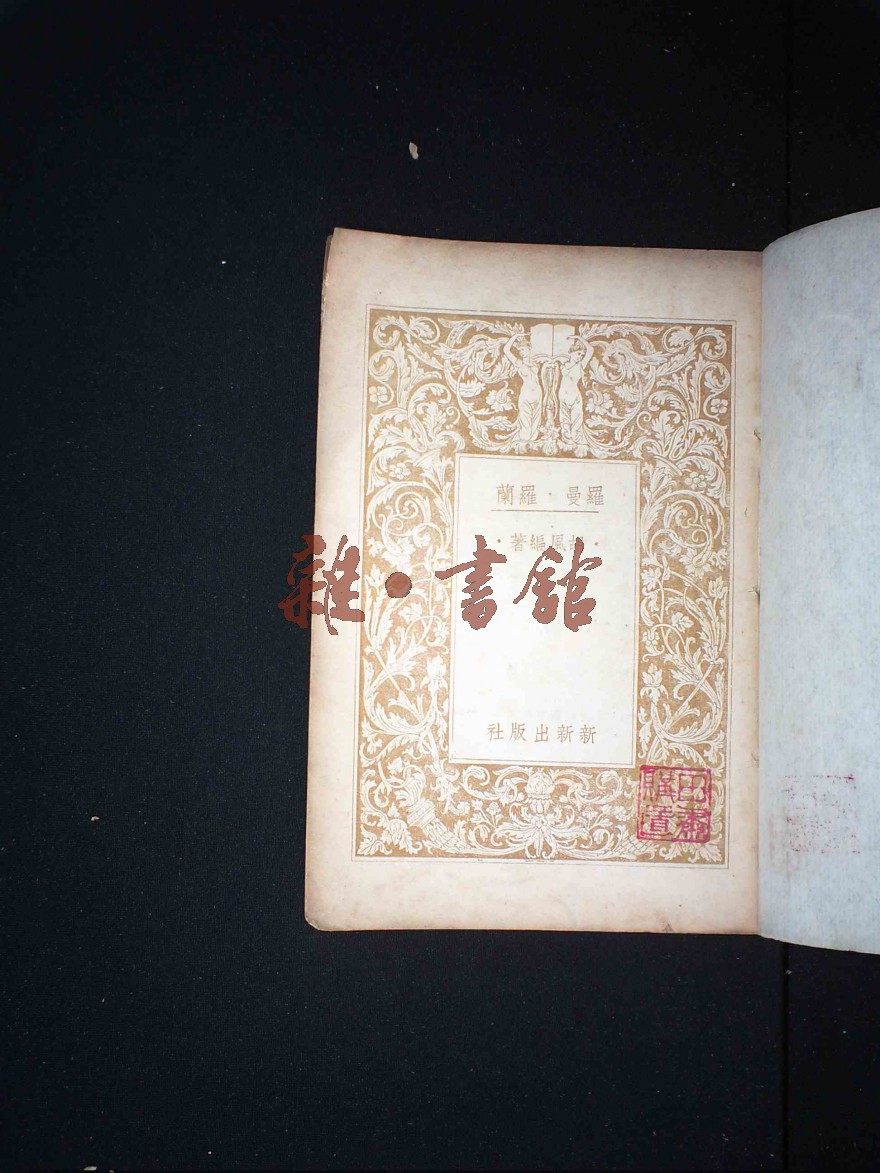 羅曼・羅蘭
・胡風編著・
雜・書館
新新出版社